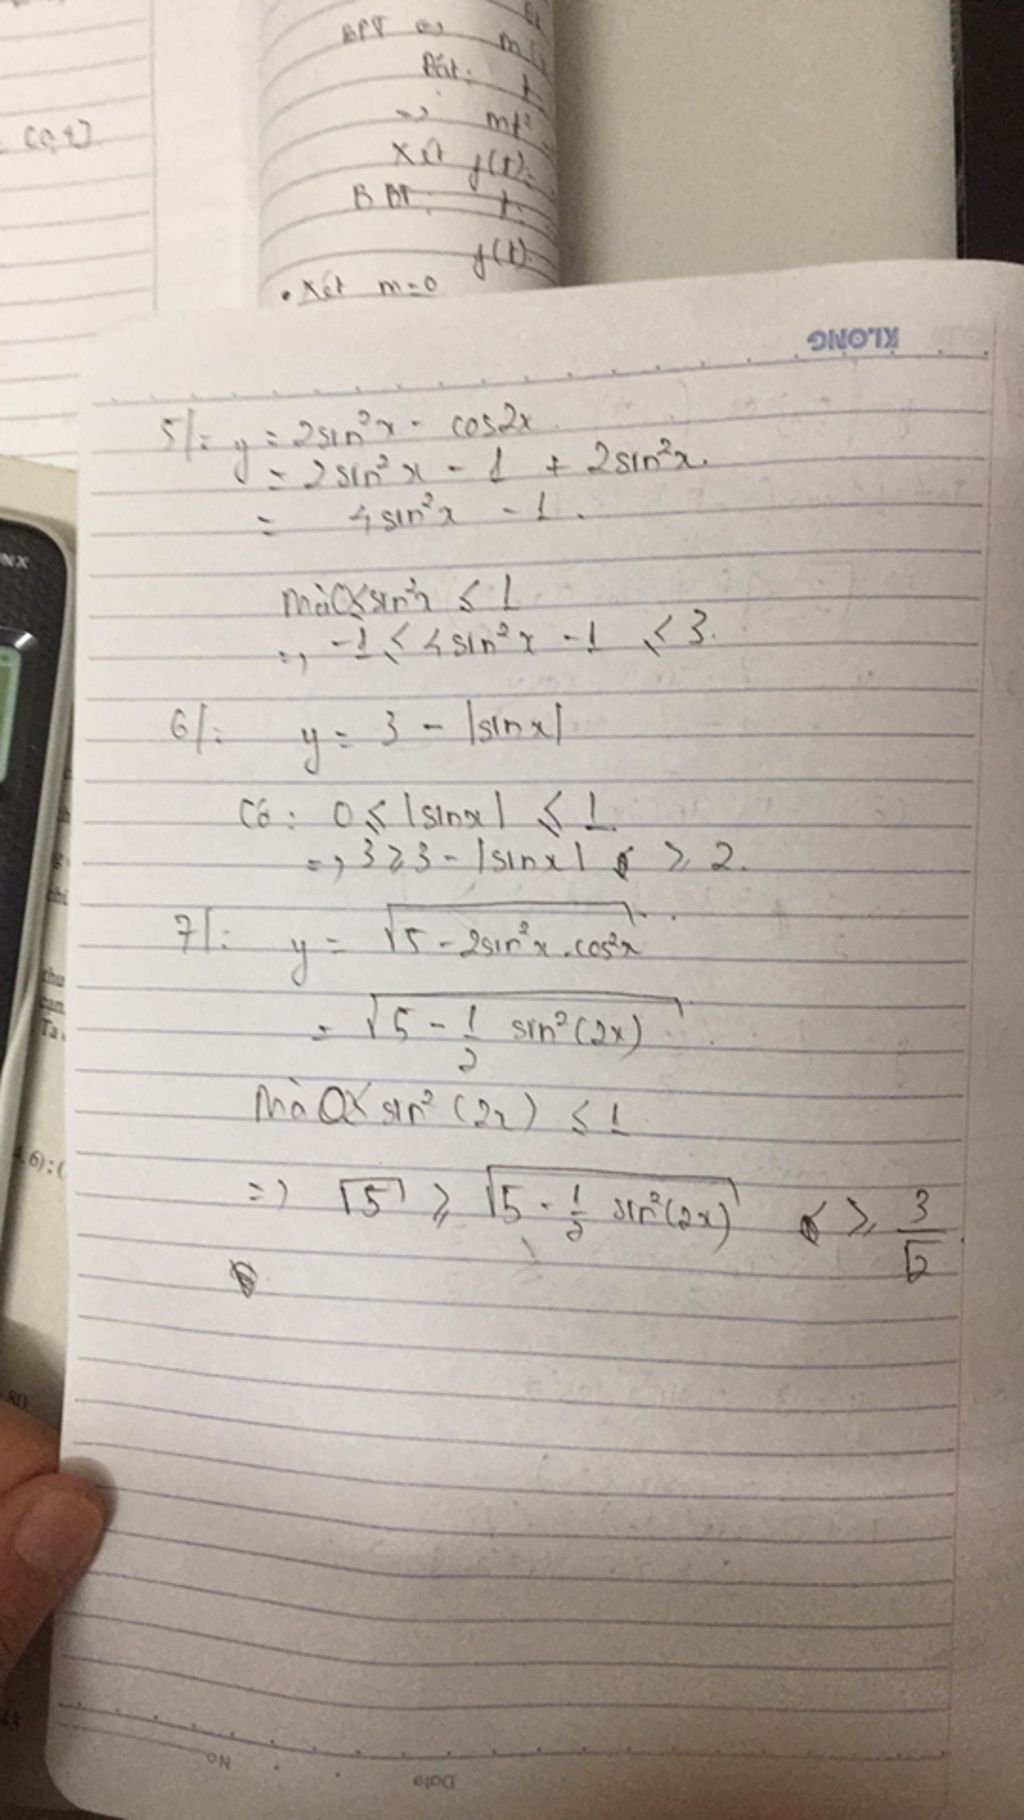 BPT <=>
Đặt:
=> mt²
Xét f(t):
BBT: t
f(t):
• Xét m=0
KLONG
5/: y = 2sin²x - cos2x
= 2sin²x - 1 + 2sin²x.
= 4sin²x - 1.
mà 0 ≤ sin²x ≤ 1
=> -1 ≤ 4sin²x - 1 ≤ 3.
6/: y = 3 - |sinx|
Có: 0 ≤ |sinx| ≤ 1.
=> 3 ≥ 3 - |sinx| ≥ 2.
7/: y = √(5 - 2sin²x.cos²x)
= √(5 - 1/2 sin²(2x))
mà 0 ≤ sin²(2x) ≤ 1
=> √5 ≥ √(5 - 1/2 sin²(2x)) ≥ 3/√2.
No
Date
NX
Ta
.6);(
80